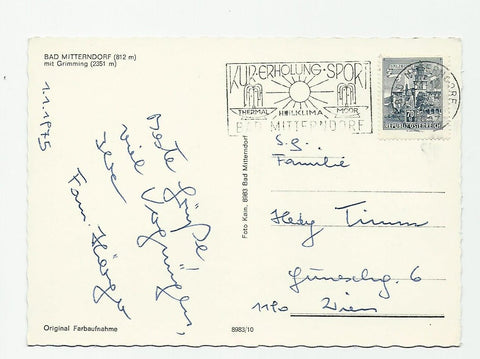 BAD MITTERNDORF (812 m)
mit Grimming (2351 m)
1.1.1975
Beste Grüße
viel Vergnügen,
Fam.
Original Farbaufnahme
8983/10
Foto Kom. 8983 Bad Mitterndorf
KUR·ERHOLUNG·SPORT
THERMAL HEILKLIMA MOOR
BAD MITTERNDORF
REPUBLIK ÖSTERREICH
S.g.
Familie
Hedy Timm
6
1190 Wien